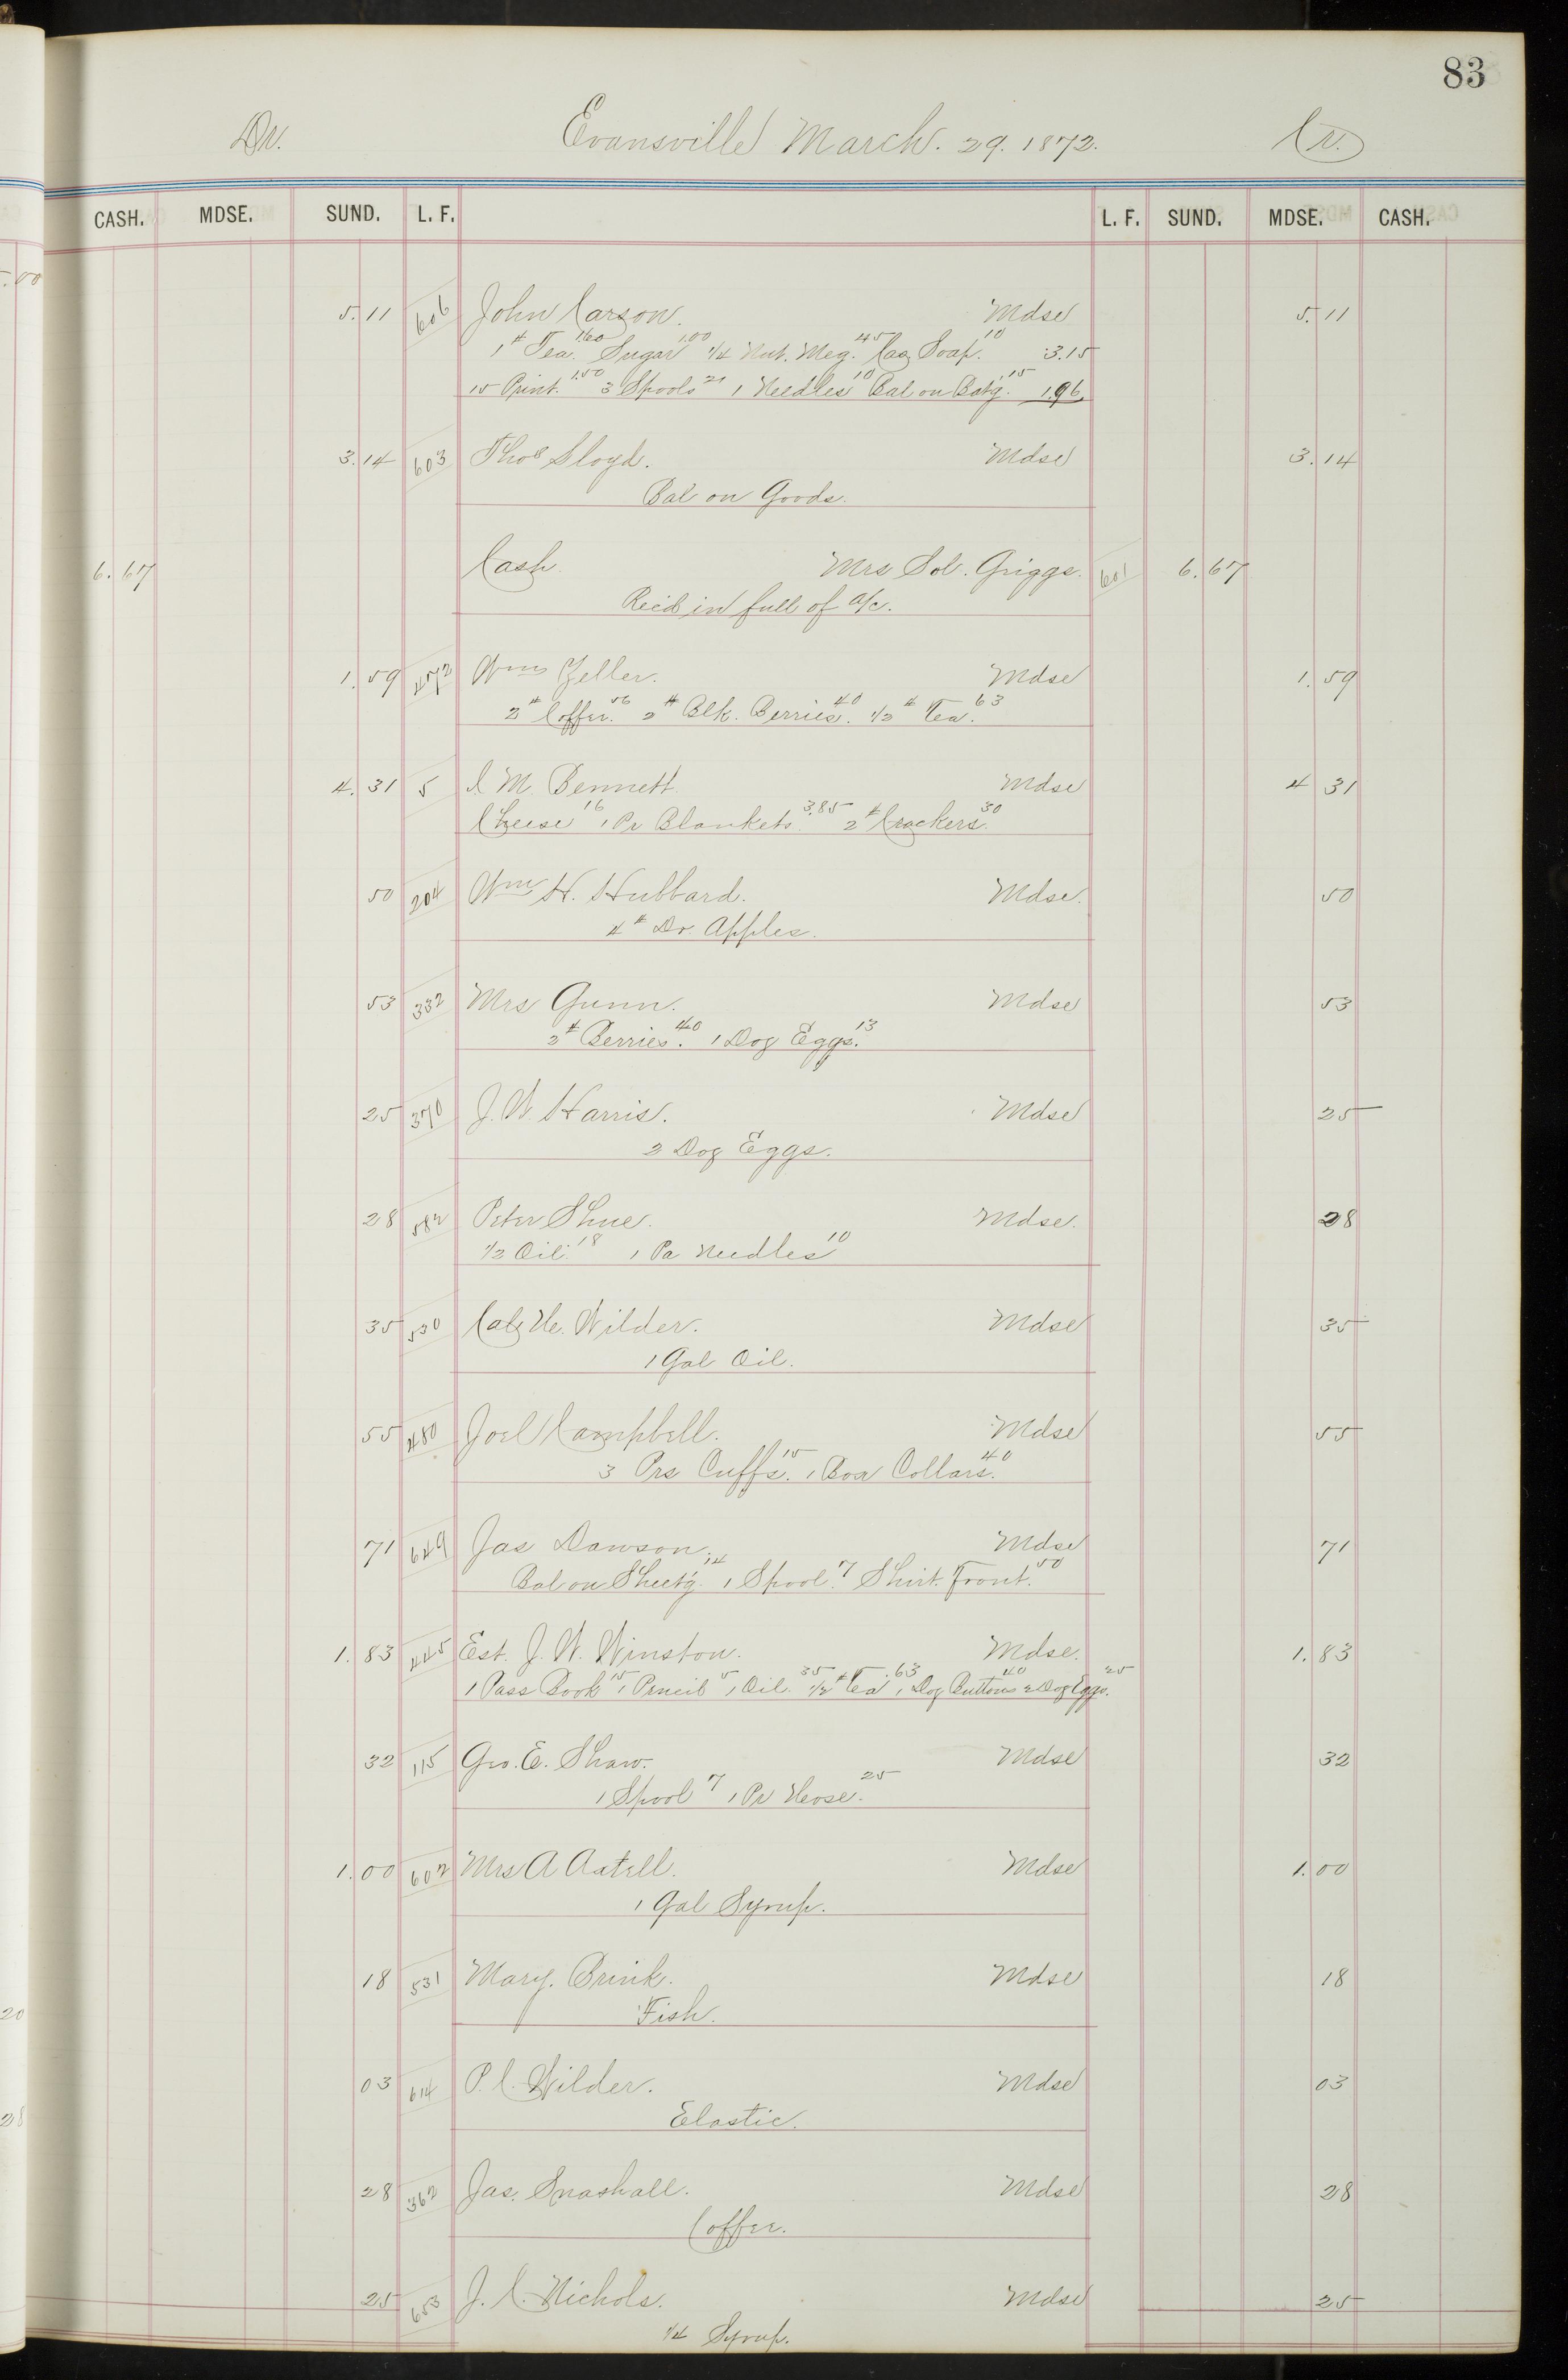 83
Dr. Evansville March. 29. 1872. Cr.
CASH. MDSE. SUND. L. F. L. F. SUND. MDSE. CASH.
5.11 606 John Carson. Mdse 5.11
1# Tea. 1.60 Sugar 1.00 1/4 Nut. Meg. 45 Cas Soap. 10 3.15
15 Print. 1.50 3 Spools 21 1 Needles 10 Bal on Batg. 15 1.96
3.14 603 Thos Lloyd. Mdse 3.14
Bal on Goods.
6.67 Cash Mrs Sol. Griggs. 601 6.67
Rec'd in full of a/c.
1.59 472 Wm Zeller. Mdse 1.59
2# Coffee. 56 2# Blk. Berries. 40 1/2# Tea. 63
4.31 5 I M. Bennett Mdse 4 31
Cheese 16 1 Pr Blankets. 3.85 2# Crackers. 30
50 204 Wm H. Hubbard. Mdse. 50
4# Dr. Apples.
53 332 Mrs Gunn. Mdse 53
2# Berries. 40 1 Doz Eggs. 13
25 370 J. W. Harris. Mdse 25
2 Doz Eggs.
28 582 Peter Shue. Mdse. 28
1/2 Oil. 18 1 Pa Needles 10
35 530 Cal, He. Wilder. Mdse 35
1 Gal Oil.
55 480 Joel Campbell. Mdse 55
3 Prs Cuffs. 15 1 Box Collars. 40
71 649 Jas Dawson. Mdse 71
Bal on Sheet'g. 14 1 Spool. 7 Shirt. Front. 50
1.83 445 Est. J. W. Winston. Mdse. 1.83
1 Pass Book 15 1 Pencil 5 1 Oil. 35 1/2# Tea 63 1 Doz Buttons 40 2 Doz Eggs. 25
32 115 Geo. E. Shaw. Mdse 32
1 Spool 7 1 Pr Hose. 25
1.00 602 Mrs A Axtell. Mdse 1.00
1 Gal Syrup.
18 531 Mary. Brink. Mdse 18
Fish.
03 614 P. C. Wilder. Mdse 03
Elastic.
28 362 Jas. Snashall. Mdse 28
Coffee.
25 653 J. C. Nichols. Mdse 25
1/4 Syrup.